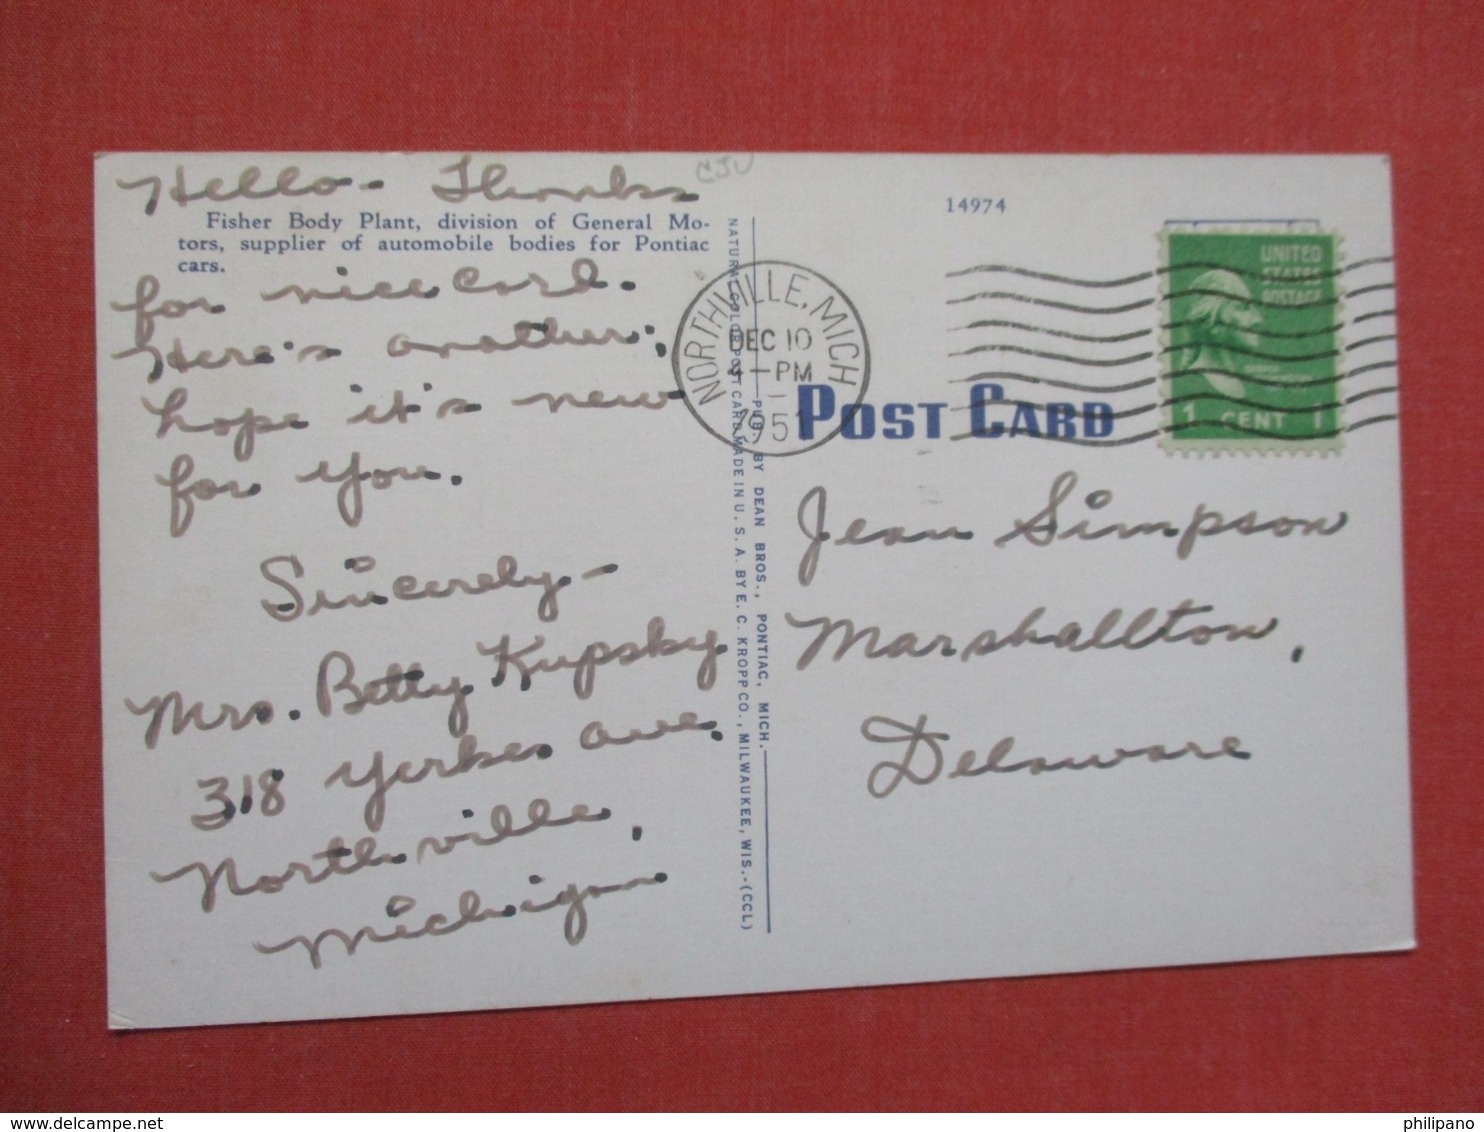 CJV
Hello - Thanks
Fisher Body Plant, division of General Mo-
tors, supplier of automobile bodies for Pontiac
cars.
for nice card.
Here's another,
hope it's new
for you.
Sincerely -
Mrs. Betty Kupsky
318 Yerkes Ave.
Northville,
Michigan
NATURAL COLOR POST CARD MADE IN U. S. A. BY E. C. KROPP CO., MILWAUKEE, WIS.-(CCL)
PUB. BY DEAN BROS., PONTIAC, MICH.
14974
NORTHVILLE, MICH
DEC 10
4-PM
1951
UNITED
STATES
POSTAGE
1 CENT 1
POST CARD
Jean Simpson
Marshallton,
Delaware
www.delcampe.net
philipano